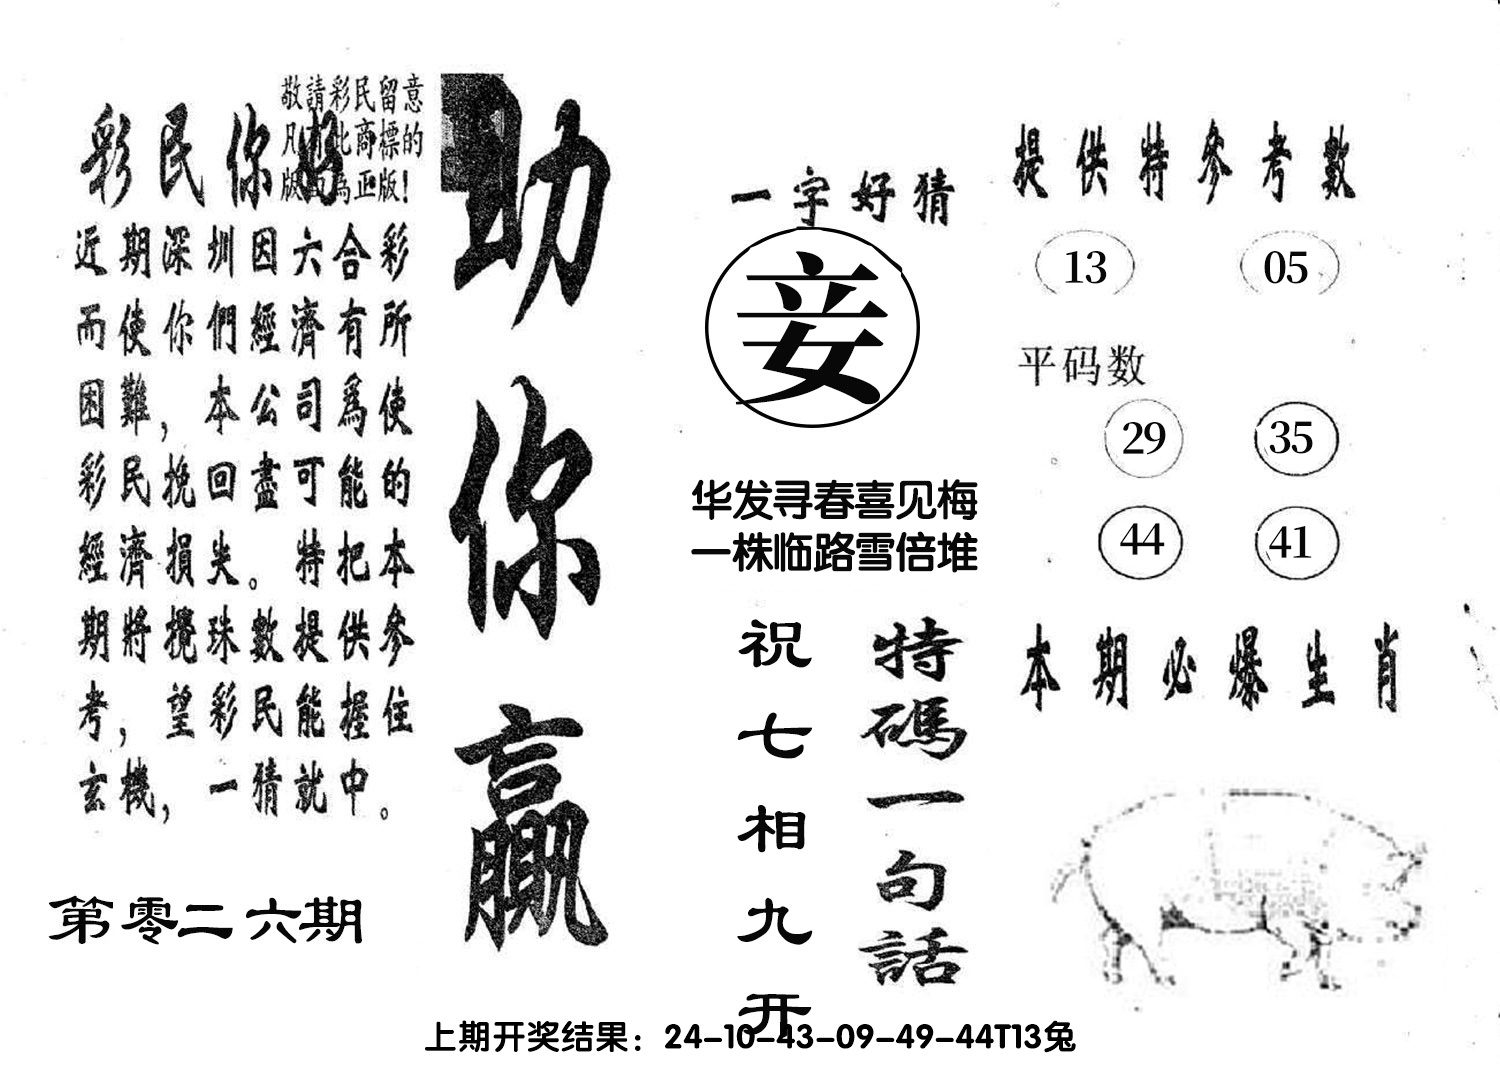 敬請彩民留意
凡有此商標的
版面為正版！
彩民你好
近期深圳因六合彩
而使你們經濟有所
困難，本公司爲使
彩民挽回盡可能的
經濟損失。特把本
期將攪珠數提供參
考，望彩民能握住
玄機，一猜就中。
第零二六期
助你贏
一字好猜
妾
华发寻春喜见梅
一株临路雪倍堆
特碼一句話
祝七相九开
提供特參考數
13 05
平码数
29 35
44 41
本期必爆生肖
上期开奖结果：24-10-43-09-49-44T13兔